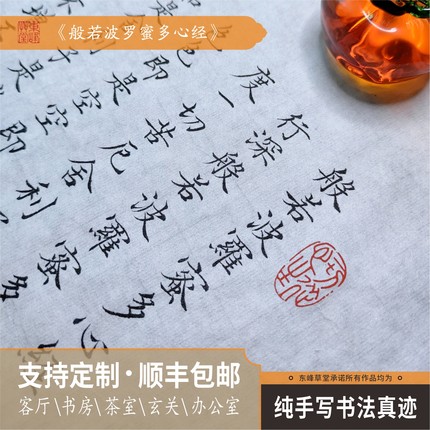 《般若波罗蜜多心经》
般若波羅蜜多心
行深般若波羅蜜多
度一切苦厄舍利
即是空
支持定制·顺丰包邮
客厅\书房\茶室\玄关\办公室
东峰草堂承诺所有作品均为
纯手写书法真迹